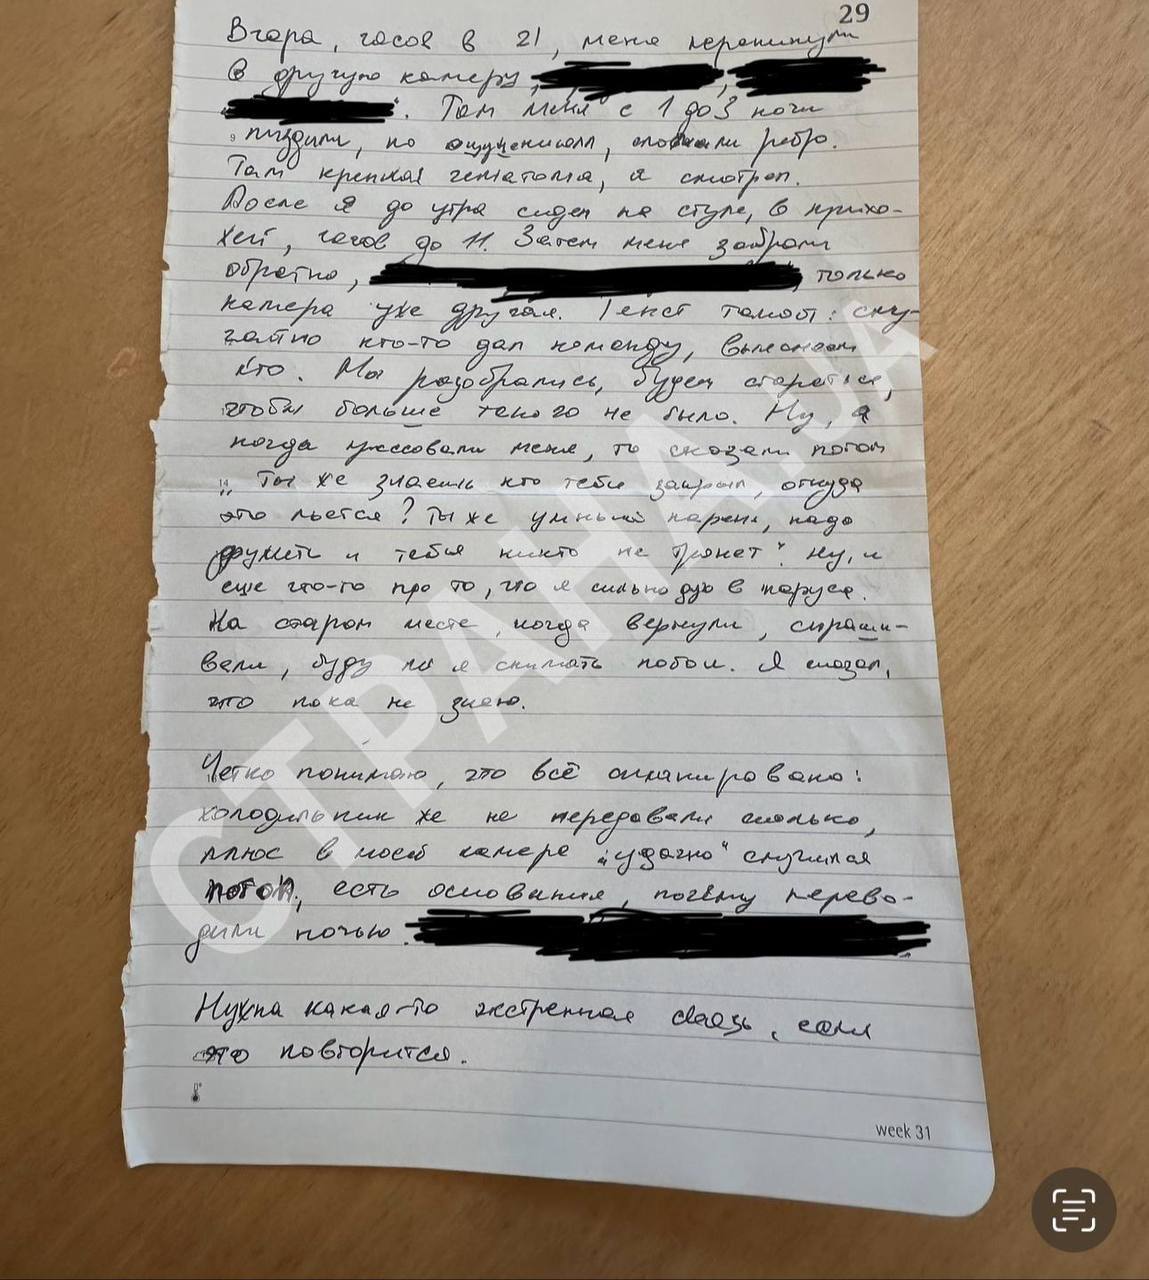 29
Вчера, часов в 21, меня перекинули
в другую камеру,
Там меня с 1 до 3 ночи
9 пиздили, по ощущениям, сломали ребро.
Там крепкая гематома, я смотрел.
После я до утра сидел на стуле, в прихо-
жей, часов до 11. Затем меня забрали
обратно, только
камера уже другая. Текст такой: слу-
чайно кто-то дал команду, выясняем
кто. Мы разобрались, будем стараться,
чтобы больше такого не было. Ну, а
когда прессовали меня, то сказали потом
14 „Ты же знаешь кто тебя закрыл, откуда
это льется? Ты же умный парень, надо
дружить и тебя никто не тронет“. Ну, и
еще что-то про то, что я сильно дую в паруса.
На старом месте, когда вернули, спраши-
вали, буду ли я снимать побои. Я сказал,
что пока не знаю.
Четко понимаю, что всё спланировано:
холодильник же не передавали сколько,
плюс в моей камере „удачно“ случился
потоп, есть основания, почему перево-
дили ночью.
Нужна какая-то экстренная связь, если
это повторится.
week 31
СТРАНА.UA